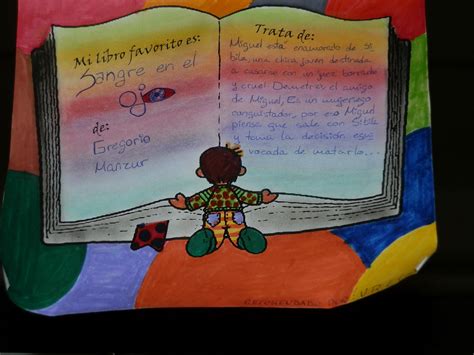 Mi libro favorito es:
Sangre en el
de:
Gregorio
Manzur
Trata de:
Miguel está enamorado de Si
bila, una chica joven destinada
a casarse con un juez borracho
y cruel. Demetrer el amigo
de Miguel, Es un mugeriego
conquistador, por eso Miguel
piensa que sale con Sibila
y toma la decisión equi
vocada de matarlo...
RECOMENDADO POR